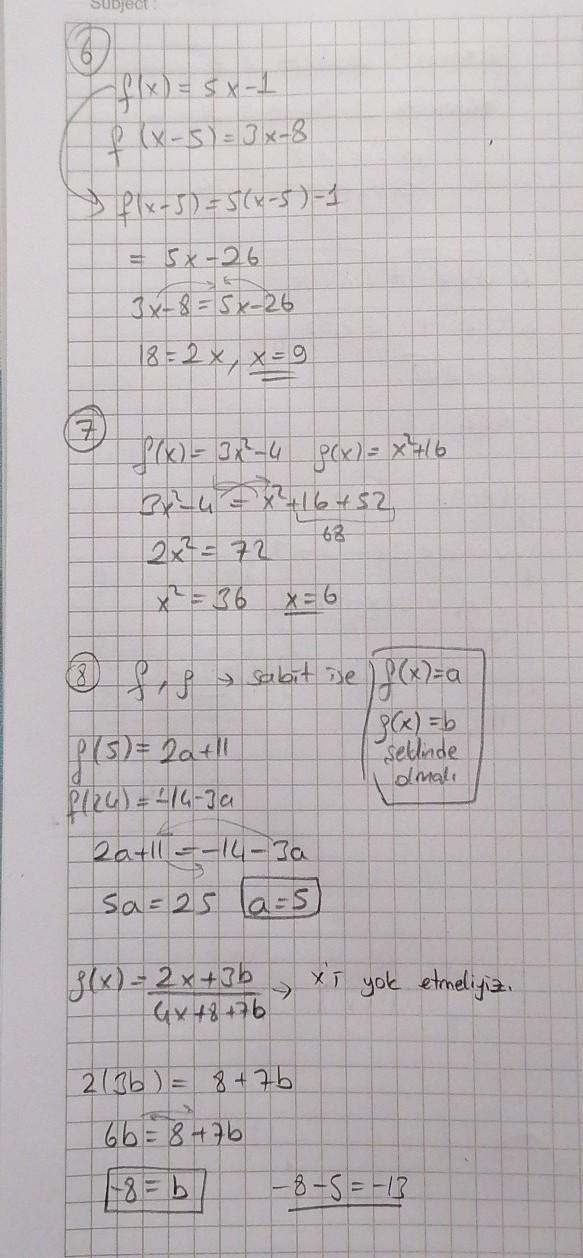 Subject :
6
f(x) = 5x-1
f (x-5) = 3x-8
f(x-5) = 5(x-5)-1
= 5x-26
3x-8 = 5x-26
18 = 2x, x=9
7
f(x) = 3x²-4 g(x) = x²+16
3x²-4 = x²+16+52
68
2x² = 72
x² = 36 x=6
8 f, g → sabit ise f(x)=a
g(x) = b
şeklinde
olmalı
f(5) = 2a+11
f(24) = -14-3a
2a+11 = -14-3a
5a = 25 a=5
g(x) = 2x+3b / 4x+8+7b → x'i yok etmeliyiz.
2(3b) = 8+7b
6b = 8+7b
-8 = b -8-5 = -13